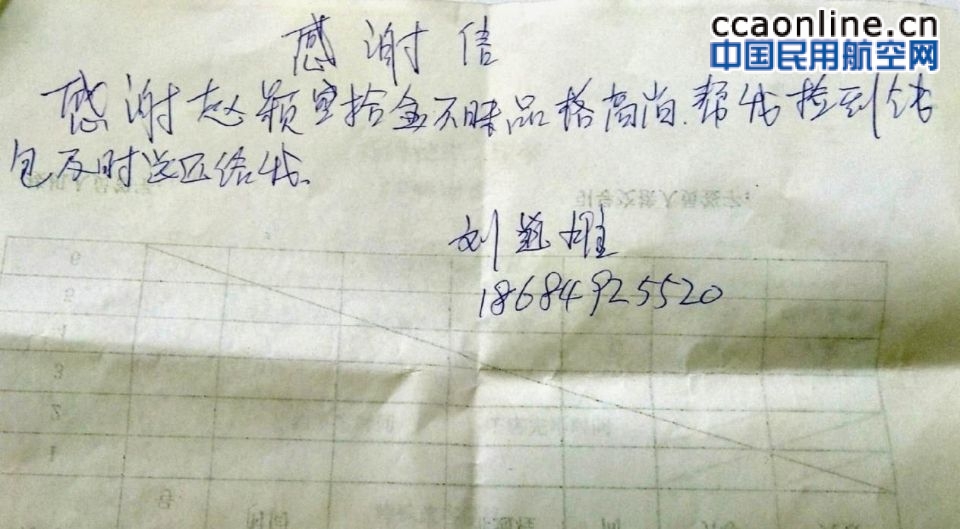 ccaonline.cn
中国民用航空网
感谢信
感谢赵颖宇拾金不昧品格高尚.帮我捡到钱
包及时送还给我.
刘 雄
18684925520